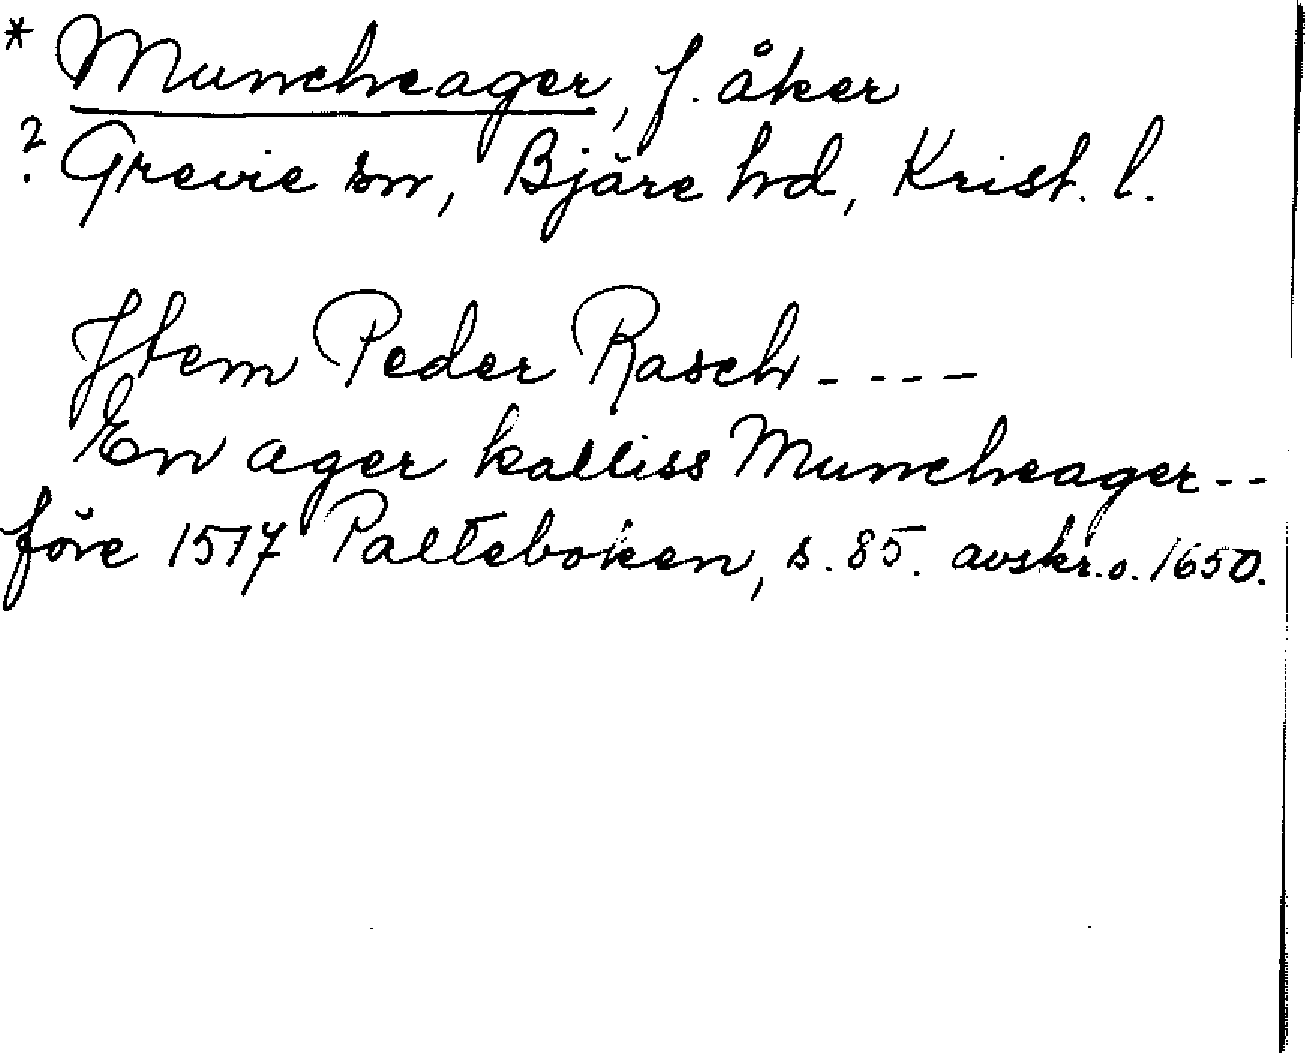 * Muncheager, f. åker
? Grevie sn, Bjäre hd, Krist. l.
Jtem Peder Rasch - - - -
En ager kalliss Muncheager - -
före 1517 Palteboken, s. 85. avskr. o. 1650.